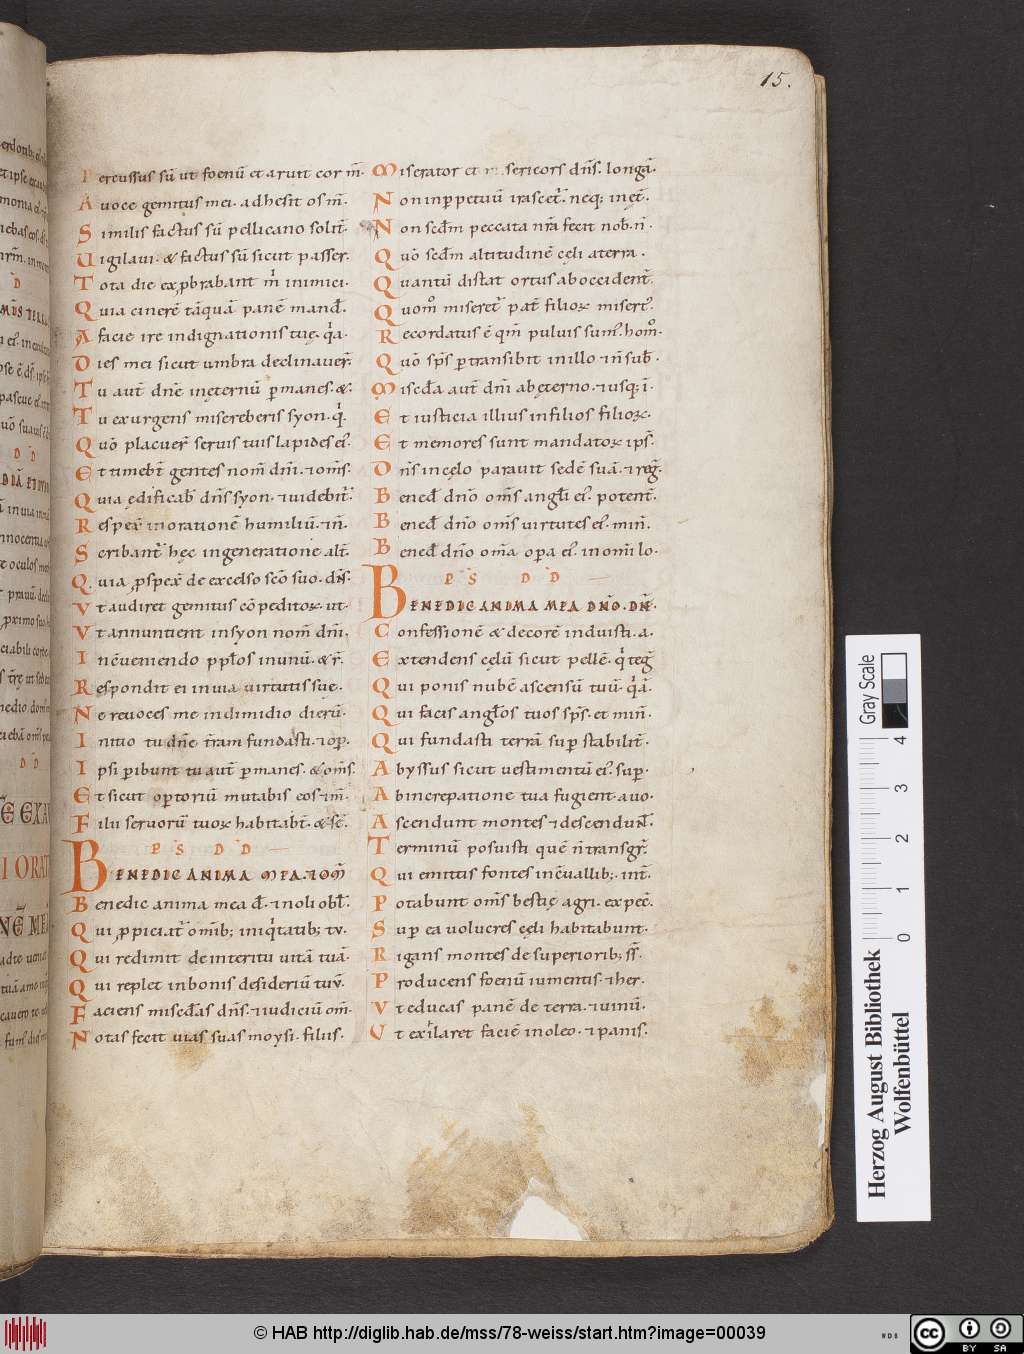 15.
Percussus sū ut foenū et aruit cor m̄.
A voce gemitus mei. adhesit os m̄.
Similis factus sū pellicano solit̄.
Uigilaui. & factus sū sicut passer.
Tota die exp̱brabant m̄ inimici.
Quia cinerē tāquā panē mand̄.
A facie ire indignationis tuę. q̄a.
Dies mei sicut umbra declinauer̄.
Tu aut̄ dn̄e inęternū p̱manes. &.
Tu exurgens misereberis syon. q̄.
Quō placuer̄ seruis tuis lapides ei᾽.
Et timeb̄t gentes nom̄ dn̄i. ⁊om̄s.
Quia ędificab̄ dn̄s syon. ⁊uidebit᾽.
Respex̄ in orationē humiliū. ⁊n̄.
Scribant᾽ hęc in generatione alt̄.
Quia p̱spex̄ de excelso sc̄o suo. dn̄s.
Vt audiret gemitus cōpeditoꝝ. ut.
Vt annuntient insyon nom̄ dn̄i.
In c̄ueniendo pp̄los inunū. & r̄.
Respondit ei inuia uirtutis suę.
Ne reuoces me indimidio dierū.
Initio tu dn̄e t̄ram fundasti. ⁊op̄.
Ipsi p̱ibunt tu aut̄ p̱manes. & om̄s.
Et sicut op̱toriū mutabis eos ⁊m̄.
Filii seruorū tuoꝝ habitab̄t. & sē.
PS DD
BENEDIC ANIMA MEA. ⁊OM̄
Benedic anima mea d̄. ⁊noli obl̄.
Qui p̱piciat᾽ om̄ib; iniq̄tatib; tu.
Qui redimit de interitu uitā tuā.
Qui replet inbonis desideriū tuū.
Faciens misc̄das dn̄s. ⁊iudiciū om̄.
Notas fecit uias suas moysi. filiis.
Miserator et misericors dn̄s. longā.
Non inp̱petuū irascet᾽. neq; inęt̄.
Non sc̄dm peccata nr̄a fecit nob̄. n̄.
Quō sc̄dm altitudinē cęli aterra.
Quantū distat ortus aboccident̄.
Quom̊ miseret᾽ pat̄ filioꝝ misert᾽.
Recordatus ē qm̄ puluis sum᾽. hom̊.
Quō sp̄s p̱transibit inillo ⁊n̄ sub̄.
Misc̄da aut̄ dn̄i abęterno. ⁊usq; ī.
Et iusticia illius infilios filioꝝ.
Et memores sunt mandatoꝝ ips̄.
Dn̄s incęlo parauit sedē suā. ⁊reḡ.
Bened̄ dn̄o om̄s angl̄i ei᾽. potent̄.
Bened̄ dn̄o om̄s uirtutes ei᾽. min̄.
Bened̄ dn̄o om̄a op̱a ei᾽. inom̄i lo.
PS DD
BENEDIC ANIMA MEA DN̄O. DN̄E.
Confessionē & decorē induisti. a.
Extendens cęlū sicut pellē. q̄ teḡ
Qui ponis nubē ascensū tuū. q̄ā.
Qui facis angl̄os tuos sp̄s. et min̄.
Qui fundasti terrā sup̱ stabilit̄.
Abyssus sicut uestimentū ei᾽. sup̱.
Abincrepatione tua fugient. auo.
Ascendunt montes ⁊descendunt̄.
Terminū posuisti quē n̄ transgr̄.
Qui emittis fontes inc̄uallib;. int̄.
Potabunt om̄s bestię agri. expec̄.
Sup̱ ea uolucres cęli habitabunt.
Rigans montes de superiorib; s̄r.
Producens foenū iumentis. ⁊her.
Vt educas panē de terra. ⁊uinū.
Vt exilaret faciē inoleo. ⁊panis.
Gray Scale
0 1 2 3 4
Herzog August Bibliothek
Wolfenbüttel
© HAB http://diglib.hab.de/mss/78-weiss/start.htm?image=00039
cc BY SA